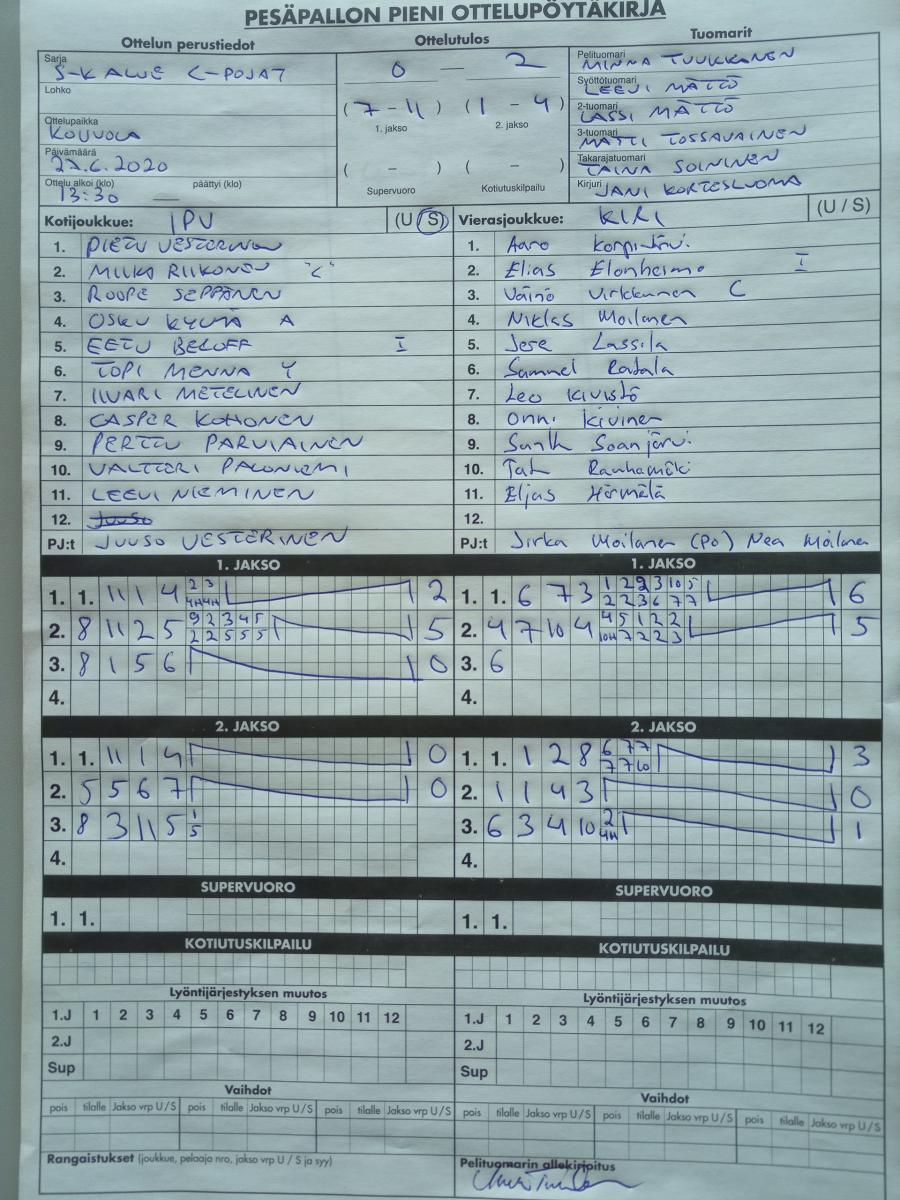 PESÄPALLON PIENI OTTELUPÖYTÄKIRJA
Ottelun perustiedot
Ottelutulos
Tuomarit
Sarja
S-KALUE C-POJAT
Lohko
Ottelupaikka
KOUVOLA
Päivämäärä
27.6.2020
Ottelu alkoi (klo) päättyi (klo)
13:30 —
0 — 2
(7 - 11) (1 - 4)
1. jakso 2. jakso
( - ) ( - )
Supervuoro Kotiutuskilpailu
Pelituomari
MINNA TUUKKANEN
Syöttötuomari
LEEVI MÄTTÖ
2-tuomari
LASSI MÄTTÖ
3-tuomari
MATTI TOSSAVAINEN
Takarajatuomari
TAINA SOININEN
Kirjuri
JANI KORTESLUOMA
Kotijoukkue: IPV (U/S)
1. PIETU VESTERINEN
2. MIIKA RIIKONEN "C"
3. ROOPE SEPPÄNEN
4. OSKU KYLMÄ A
5. EETU BELOFF I
6. TOPI MENNA Y
7. IIVARI METELINEN
8. CASPER KOHONEN
9. PERTTU PARVIAINEN
10. VALTTERI PALONIEMI
11. LEEVI NIEMINEN
12. JUUSO
PJ:t JUUSO VESTERINEN
Vierasjoukkue: KIRI (U / S)
1. Aaro Korpi-
2. Elias Elonheimo I
3. Väinö Virkkunen C
4. Niklas Moilanen
5. Jese Lassila
6. Samuel Ratala
7. Leo Kivistö
8. Onni Kivinen
9. Soanjärvi
10. Rauhamäki
11. Eljas Härmälä
12.
PJ:t Jirka Moilanen (PO) Nea Moilanen
1. JAKSO
1. 1. 11 1 4 2 3 4H 4H 2
2. 8 11 2 5 9 2 3 4 5 2 2 5 5 5 5
3. 8 1 5 6 0
4.
1. JAKSO
1. 1. 6 7 3 1 2 2 3 10 5 2 2 3 6 7 7 6
2. 4 7 10 4 4 5 1 2 2 10H 7 2 2 3 5
3. 6
4.
2. JAKSO
1. 1. 11 1 4 0
2. 5 5 6 7 0
3. 8 3 11 5 1 5
4.
2. JAKSO
1. 1. 1 2 8 6 7 7 7 7 10 3
2. 1 1 4 3 0
3. 6 3 4 10 2 4H 1
4.
SUPERVUORO
1. 1.
SUPERVUORO
1. 1.
KOTIUTUSKILPAILU
KOTIUTUSKILPAILU
Lyöntijärjestyksen muutos
1.J 1 2 3 4 5 6 7 8 9 10 11 12
2.J
Sup
Lyöntijärjestyksen muutos
1.J 1 2 3 4 5 6 7 8 9 10 11 12
2.J
Sup
Vaihdot
pois tilalle Jakso vrp U/S pois tilalle Jakso vrp U/S pois tilalle Jakso vrp U/S
Vaihdot
pois tilalle Jakso vrp U/S pois tilalle Jakso vrp U/S pois tilalle Jakso vrp U/S
Rangaistukset (joukkue, pelaaja nro, jakso vrp U / S ja syy)
Pelituomarin allekirjoitus